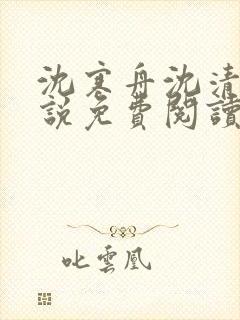 沈寒舟沈清
説免費閱讀
叱雲凰